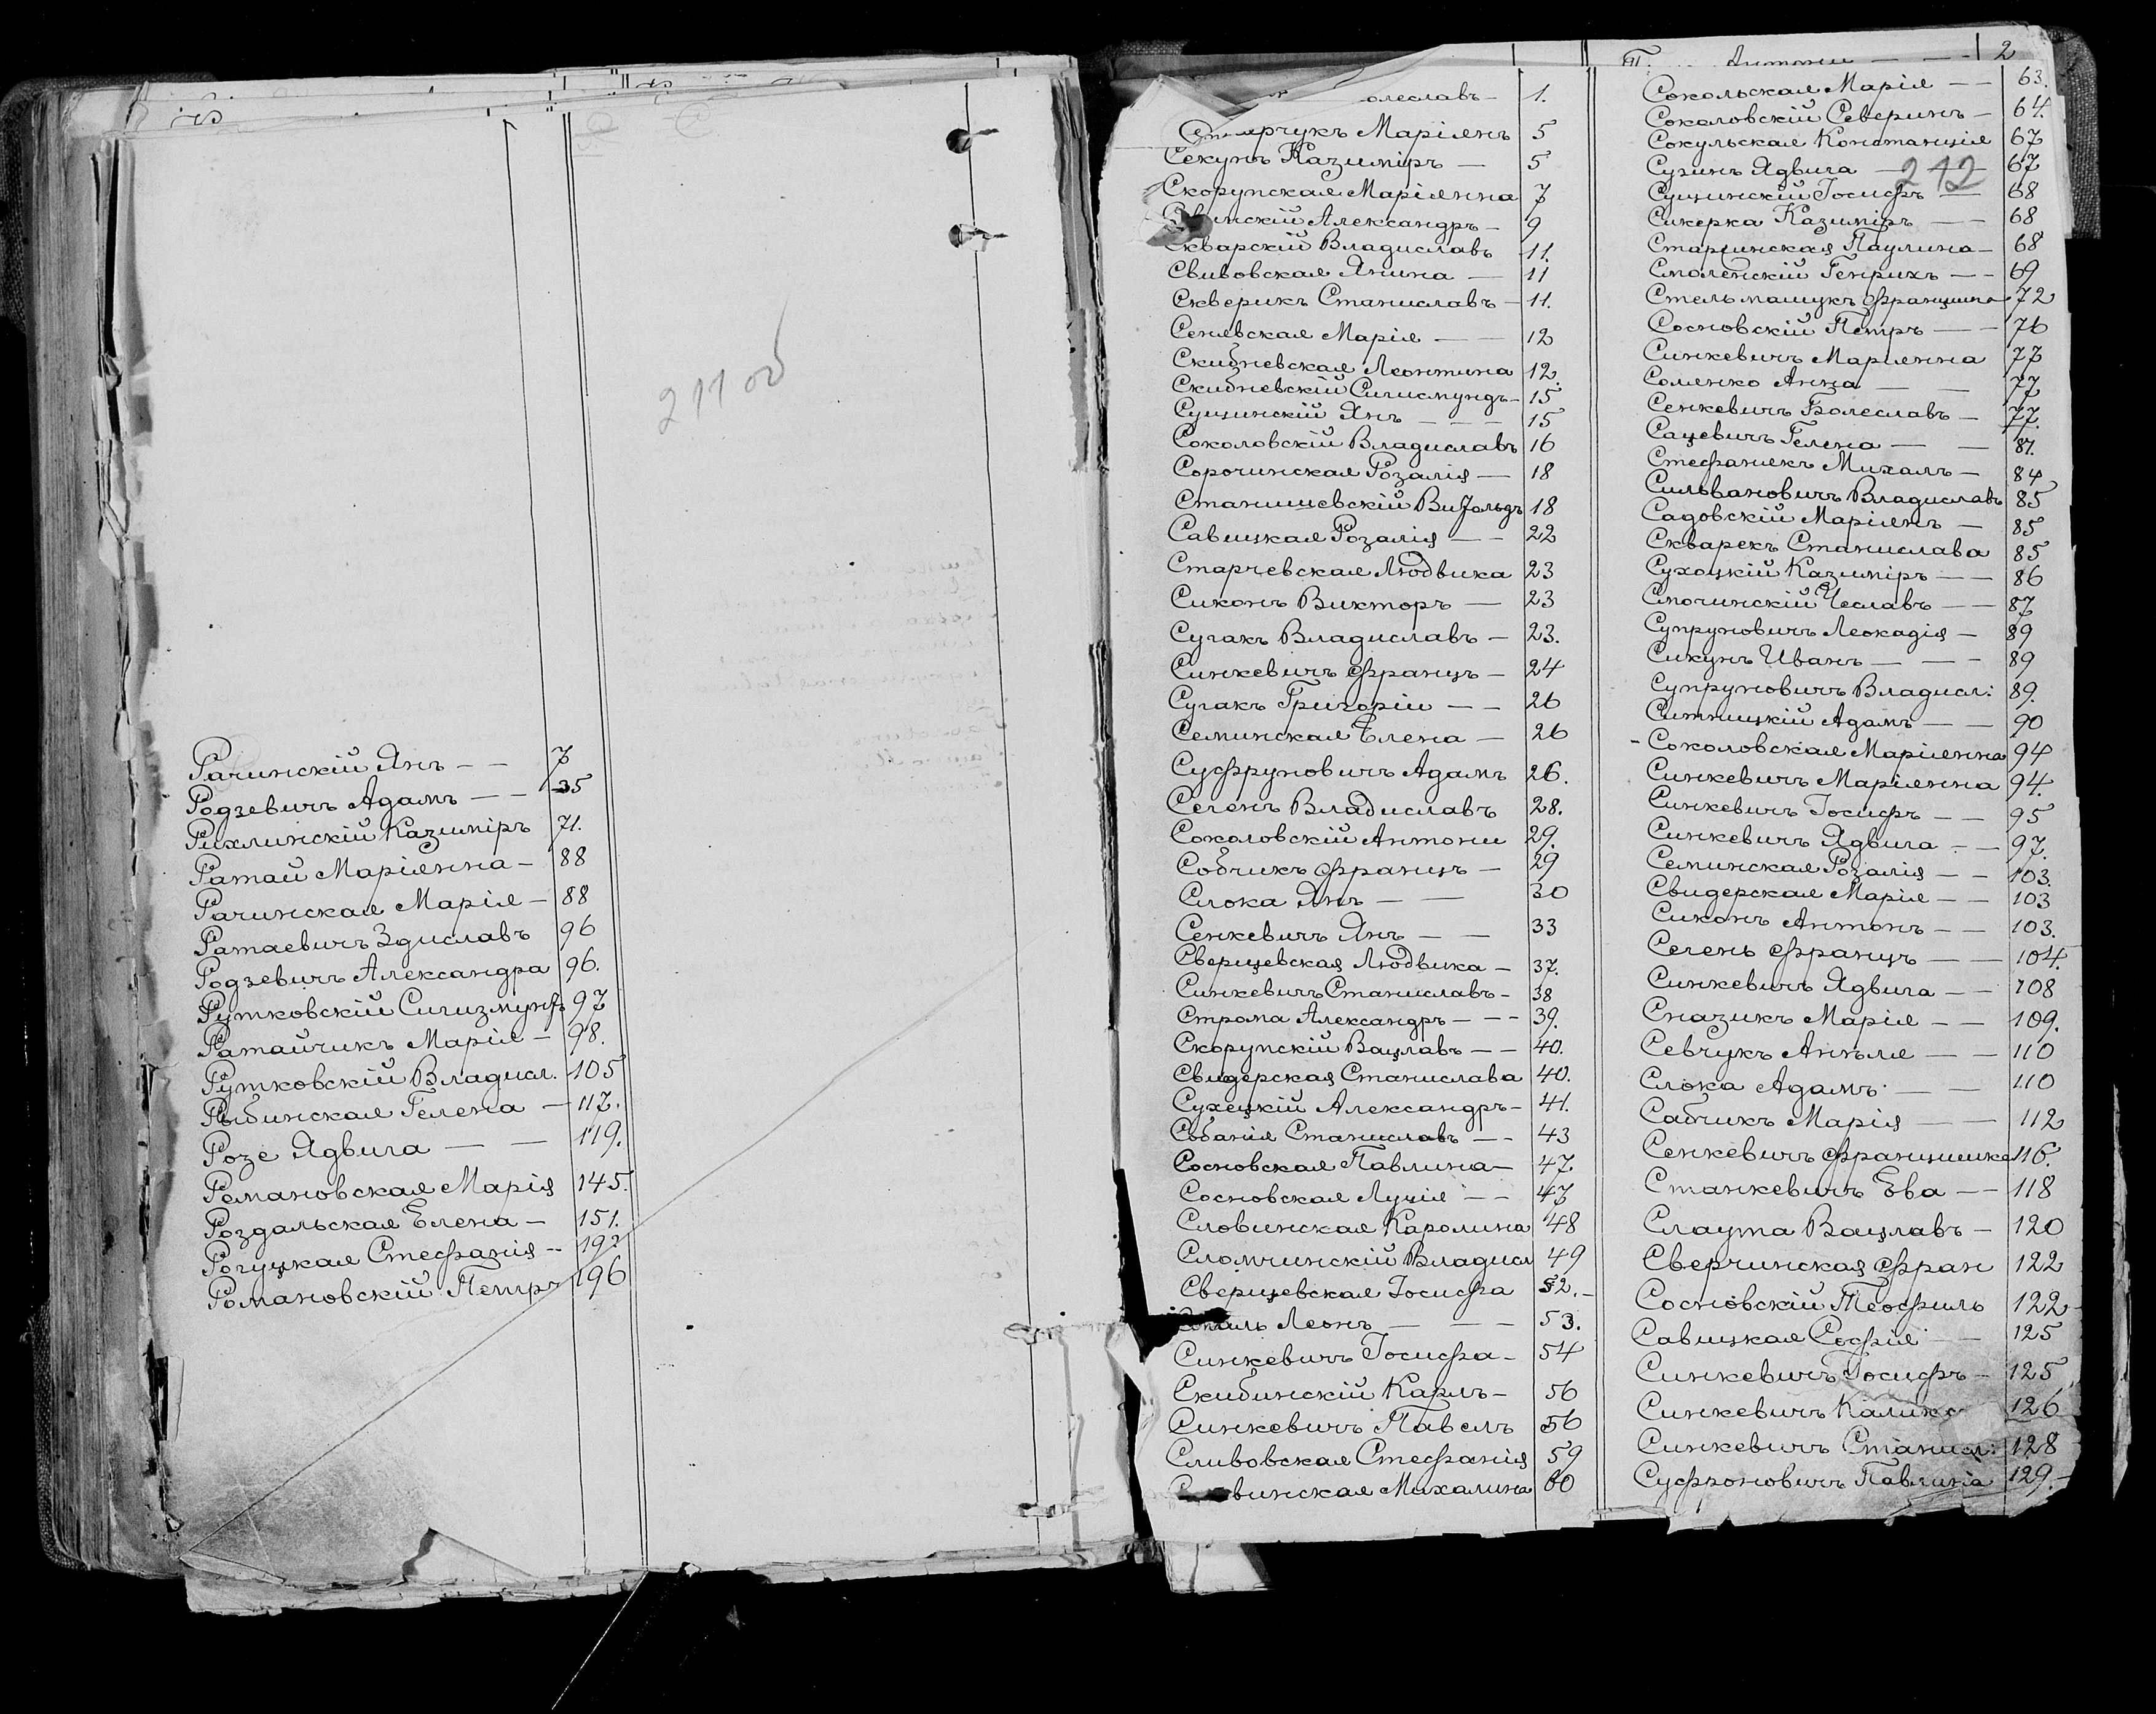 211 об
Рачинскій Янъ — — 7
Родзевичъ Адамъ — — 35
Рихлинскій Казиміръ 71.
Ратай Маріянна — 88
Рачинская Марія — 88
Ратаевичъ Здиславъ 96
Родзевичъ Александра 96.
Рутковскій Сигизмундъ 97
Ратайчикъ Марія — 98.
Рутковскій Владисл. 105
Рыбинская Гелена — 117.
Розе Ядвига — — 119.
Романовская Марія 145.
Роздальская Елена — 151.
Рогуцкая Стефанія — 192
Романовскій Петръ 196
олеславъ — 1.
Столярчукъ Маріянъ 5
Секунъ Казиміръ — 5
Скорупская Маріянна 7
инскій Александръ — 9
Скварскій Владиславъ 11.
Сливовская Янина — 11
Скверикъ Станиславъ — 11.
Сенявская Марія — — 12
Скибневская Леонтина 12.
Скибневскій Сигисмундъ — 15
Сущинскій Янъ — — — 15
Соколовскій Владиславъ 16
Сорочинская Розалія — 18
Станишевскій Витольдъ 18
Савицкая Розалія — — 22
Старчевская Людвика 23
Сиконъ Викторъ — 23
Сугакъ Владиславъ — 23.
Синкевичъ Францъ — 24
Сугакъ Григорій — — 26
Семинская Елена — 26
Сусфруновичъ Адамъ 26.
Селенъ Владиславъ 28.
Соколовскій Антоній 29.
Собчикъ Францъ — 29
Слока Янъ — — 30
Сенкевичъ Янъ — — 33
Сверщевская Людвика — 37.
Синкевичъ Станиславъ — 38
Строма Александръ — — — 39.
Скорупскій Вацлавъ — — 40.
Свидерская Станислава 40.
Сухецкій Александръ — 41.
Собанія Станиславъ — — 43
Сосновская Павлина — 47.
Сосновская Луція — — 47
Словинская Каролина 48
Сломчинскій Владисл 49
Сверщевская Іосифа 52.
Леонъ — — — 53.
Синкевичъ Іосифа — 54
Скибинскій Карлъ — 56
Синкевичъ Павелъ 56
Сливовская Стефанія 59
винская Михалина 60
Антоній — — — 2
Сокольская Марія — — 63.
Соколовскій Северинъ — 64.
Сокульская Констанція 67
Сузинъ Ядвига — 67
212
Сущинскій Іосифъ — 68
Сикерка Казиміръ — — 68
Старчинская Паулина — 68
Смоленскій Генрихъ — — 69
Стельмащукъ Францишка 72
Сосновскій Петръ — — 76
Синкевичъ Маріянна 77
Солянко Анна — — 77
Сенкевичъ Болеславъ — 77.
Сацевичъ Гелена — — 81.
Стефанякъ Михалъ — 84
Сильвановичъ Владиславъ 85
Садовскій Маріянъ — 85
Скварекъ Станислава 85
Сухоцкій Казиміръ — — 86
Смочинскій Чеславъ — — 87
Супруновичъ Леокадія — 89
Сикунъ Иванъ — — — 89
Супруновичъ Владисл: 89.
Ситницкій Адамъ — — 90
Соколовская Маріянна 94
Синкевичъ Маріянна 94.
Синкевичъ Іосифъ — — 95
Синкевичъ Ядвига — — 97.
Семинская Розалія — — 103.
Свидерская Марія — — 103
Сиконъ Антонъ — — 103.
Селень Францъ — — 104.
Синкевичъ Ядвига — — 108
Сназикъ Марія — — 109.
Севчукъ Анеля — — 110
Слока Адамъ — 110
Сабчикъ Марія — — 112
Сенкевичъ Францишка 116.
Станкевичъ Ева — — 118
Слаута Вацлавъ — 120
Сверчинская Фран 122
Сосновскій Теофиль 122
Савицкая Софія — 125
Синкевичъ Іосифъ — 125
Синкевичъ Калик 126
Синкевичъ Станисл: 128
Сусфроновичъ Павлина 129.